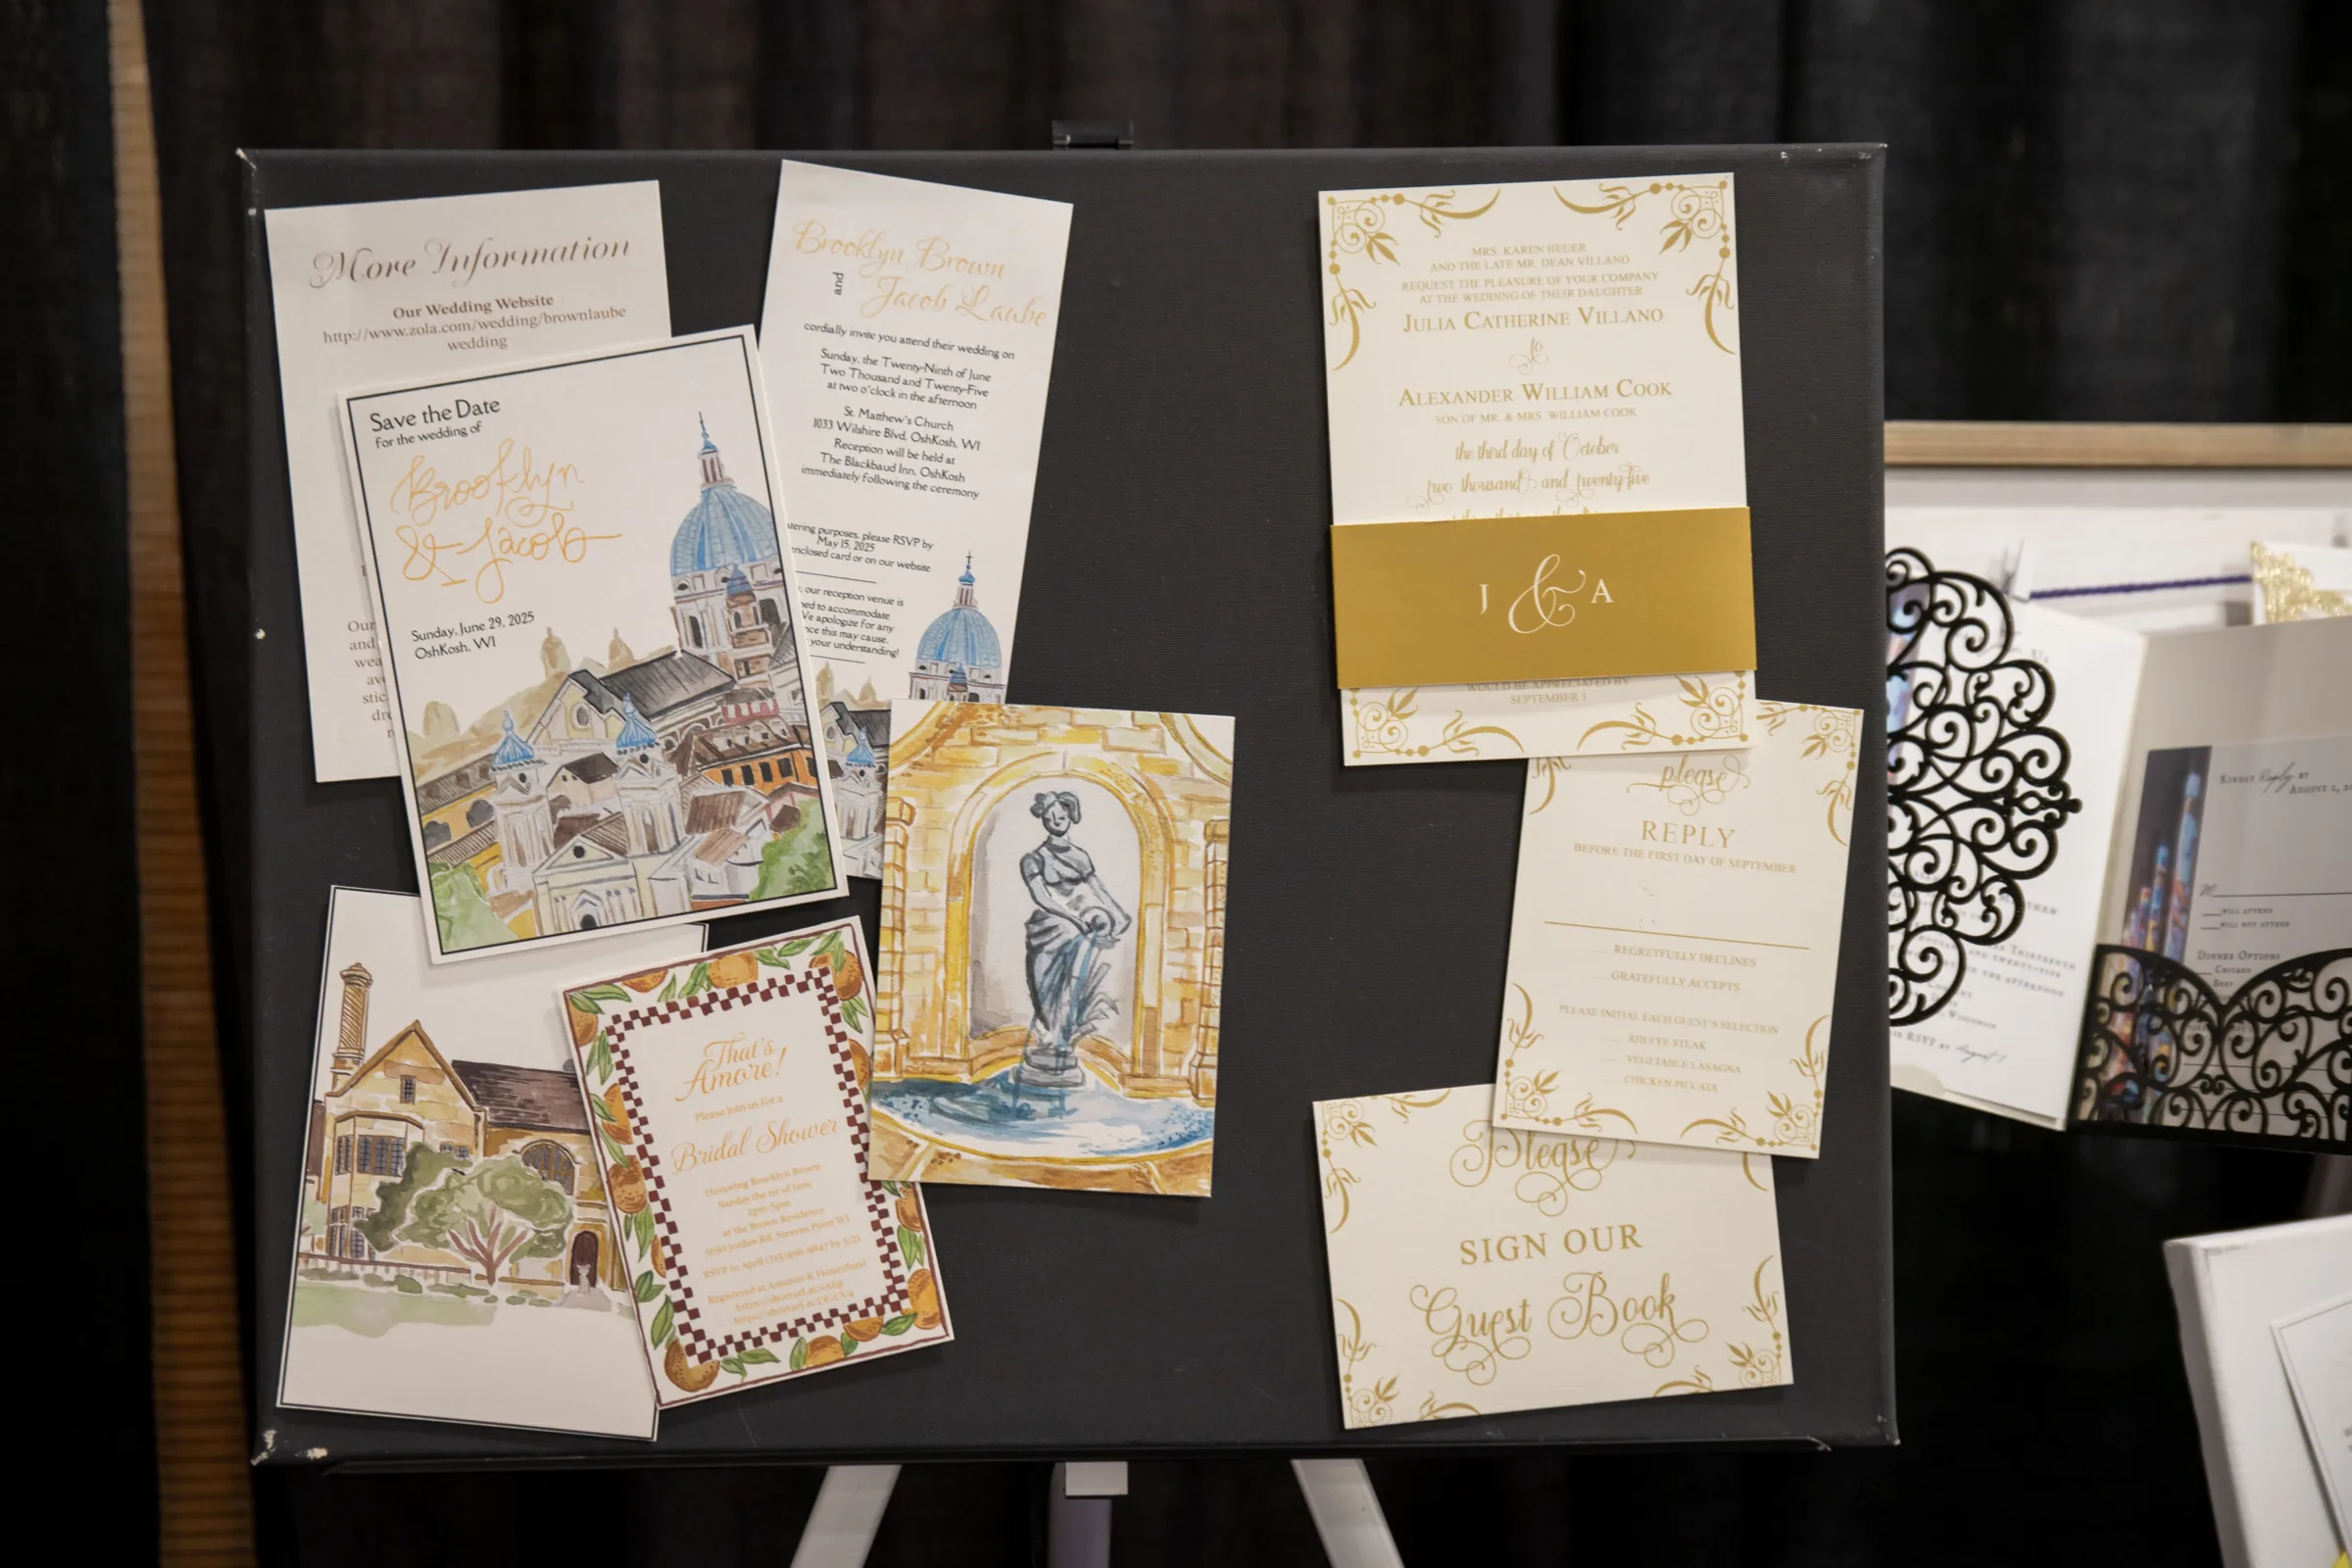 More Information
Our Wedding Website
http://www.zola.com/wedding/brownlaube
wedding
Our
and
wea
stic
Save the Date
for the wedding of
Brooklyn
& Jacob
Sunday, June 29, 2025
OshKosh, WI
Brooklyn Brown
and
Jacob Laube
cordially invite you attend their wedding on
Sunday, the Twenty-Ninth of June
Two Thousand and Twenty-Five
at two o'clock in the afternoon
St. Matthew's Church
1033 Wilshire Blvd, OshKosh, WI
Reception will be held at
The Blackbaud Inn, OshKosh
immediately following the ceremony
tering purposes, please RSVP by
May 15, 2025
enclosed card or on our website
our reception venue is
ed to accommodate
We apologize for any
nce this may cause.
your understanding!
That's
Amore!
Please join us for a
Bridal Shower
Honoring Brooklyn Brown
Sunday the 1st of June
2pm-5pm
at the Brown Residence
5650 Jordan Rd, Stevens Point WI
RSVP to April
by 5/21
Registered at Amazon & Honeyfund
MRS. KAREN HEUER
AND THE LATE MR. DEAN VILLANO
REQUEST THE PLEASURE OF YOUR COMPANY
AT THE WEDDING OF THEIR DAUGHTER
JULIA CATHERINE VILLANO
to
ALEXANDER WILLIAM COOK
SON OF MR. & MRS. WILLIAM COOK
the third day of October
two thousand and twenty-five
J & A
WOULD BE APPRECIATED BY
SEPTEMBER 1
please
REPLY
BEFORE THE FIRST DAY OF SEPTEMBER
REGRETFULLY DECLINES
GRATEFULLY ACCEPTS
PLEASE INITIAL EACH GUEST'S SELECTION
RIB EYE STEAK
VEGETABLE LASAGNA
CHICKEN PICCATA
Please
SIGN OUR
Guest Book
KINDLY Reply BY
AUGUST 1, 2
M
WILL ATTEND
WILL NOT ATTEND
DINNER OPTIONS
CHICKEN
BEEF
RSVP BY August 1